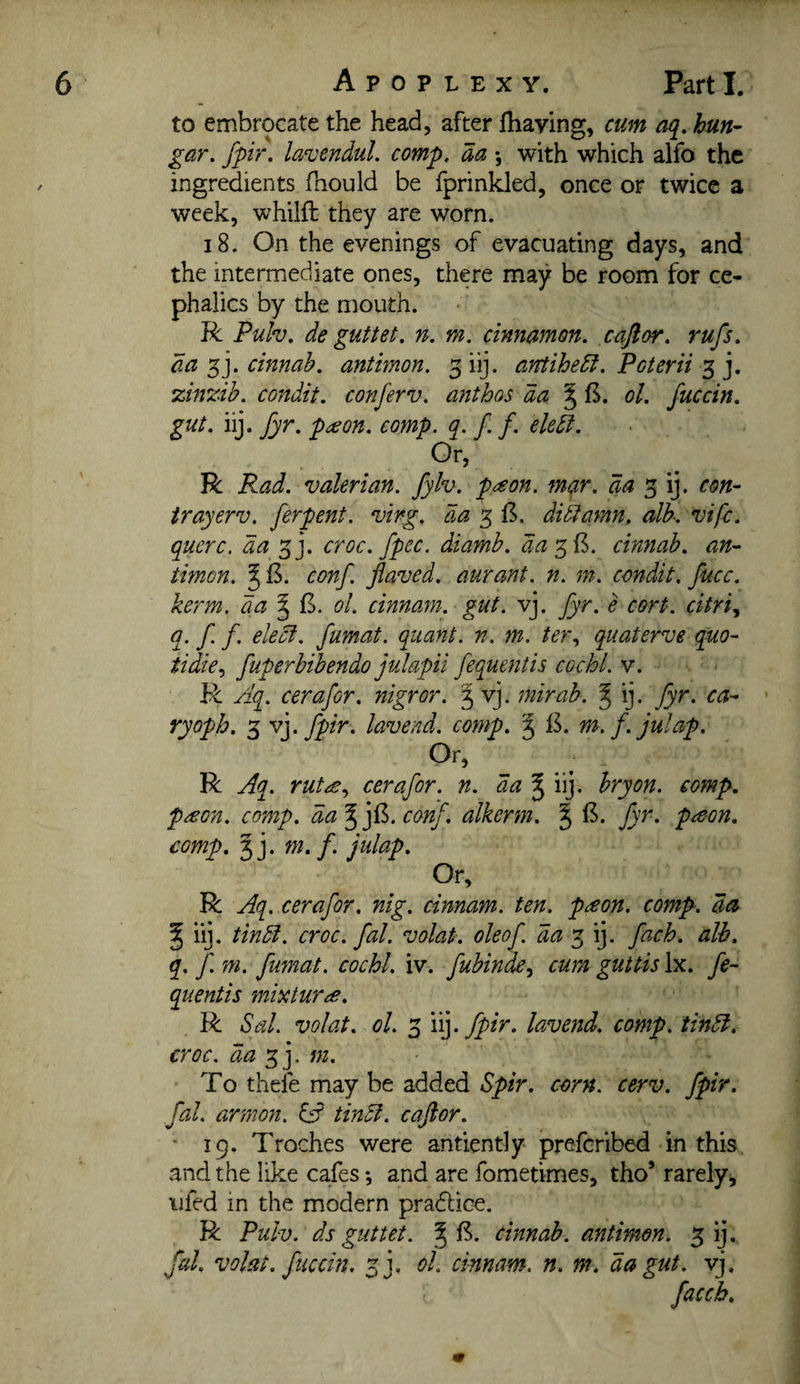 6 APOPLEXY. Part I.
to embrocate the head, after ſhaving, cum aq. hun-
gar. ſpir. lavendul. comp. āa ; with which alſo the
ingredients ſhould be ſprinkled, once or twice a
week, whilſt they are worn.
18. On the evenings of evacuating days, and
the intermediate ones, there may be room for ce-
phalics by the mouth.
℞ Pulv. de guttet. n. m. cinnamon. caſtor. ruſs.
āa ʒj. cinnab. antimon. ʒiij. antihect. Poterii ʒj.
zinzib. condit. conſerv. anthos āa ℥ß. ol. ſuccin.
gut. iij. ſyr. pæon. comp. q. ſ. f. elect.
Or,
℞ Rad. valerian. ſylv. pæon. mar. āa ʒij. con-
trayerv. ſerpent. virg. āa ʒß. dictamn. alb. viſc.
querc. āa ʒj. croc. ſpec. diamb. āa ʒß. cinnab. an-
timon. ℥ß. conſ. flaved. aurant. n. m. condit. ſucc.
kerm. āa ℥ß. ol. cinnam. gut. vj. ſyr. è cort. citri,
q. ſ. f. elect. ſumat. quant. n. m. ter, quaterve quo-
tidie, ſuperbibendo julapii ſequentis cochl. v.
℞ Aq. ceraſor. nigror. ℥vj. mirab. ℥ij. ſyr. ca-
ryoph. ʒvj. ſpir. lavend. comp. ℥ß. m. f. julap.
Or,
℞ Aq. rutæ, ceraſor. n. āa ℥iij. bryon. comp.
pæon. comp. āa ℥jß. conf. alkerm. ℥ß. ſyr. pæon.
comp. ℥j. m. f. julap.
Or,
℞ Aq. ceraſor. nig. cinnam. ten. pæon. comp. āa
℥iij. tinct. croc. ſal. volat. oleoſ. āa ʒij. ſach. alb.
q. ſ. m. ſumat. cochl. iv. ſubinde, cum guttis lx. ſe-
quentis mixturæ.
℞ Sal. volat. ol. ʒiij. ſpir. lavend. comp. tinct.
croc. āa ʒj. m.
To theſe may be added Spir. corn. cerv. ſpir.
ſal. armon. & tinct. caſtor.
19. Troches were antiently preſcribed in this
and the like caſes ; and are ſometimes, tho' rarely,
uſed in the modern practice.
℞ Pulv. ds guttet. ℥ß. cinnab. antimon. ʒij.
ſal. volat. ſuccin. ʒj. ol. cinnam. n. m. āa gut. vj.
ſacch.